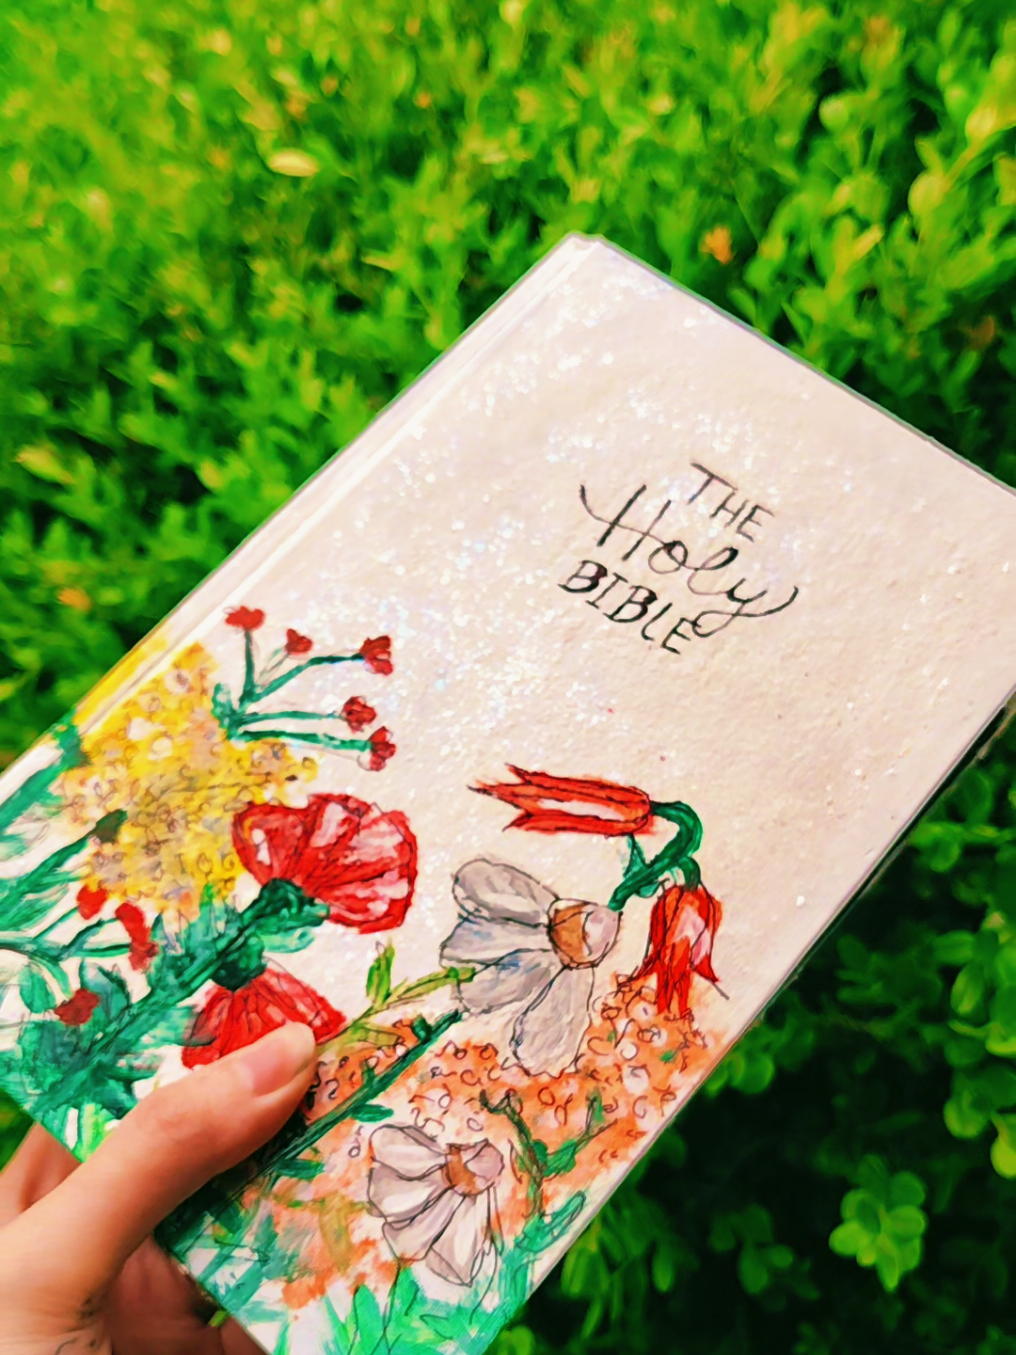 THE
Holy
BIBLE